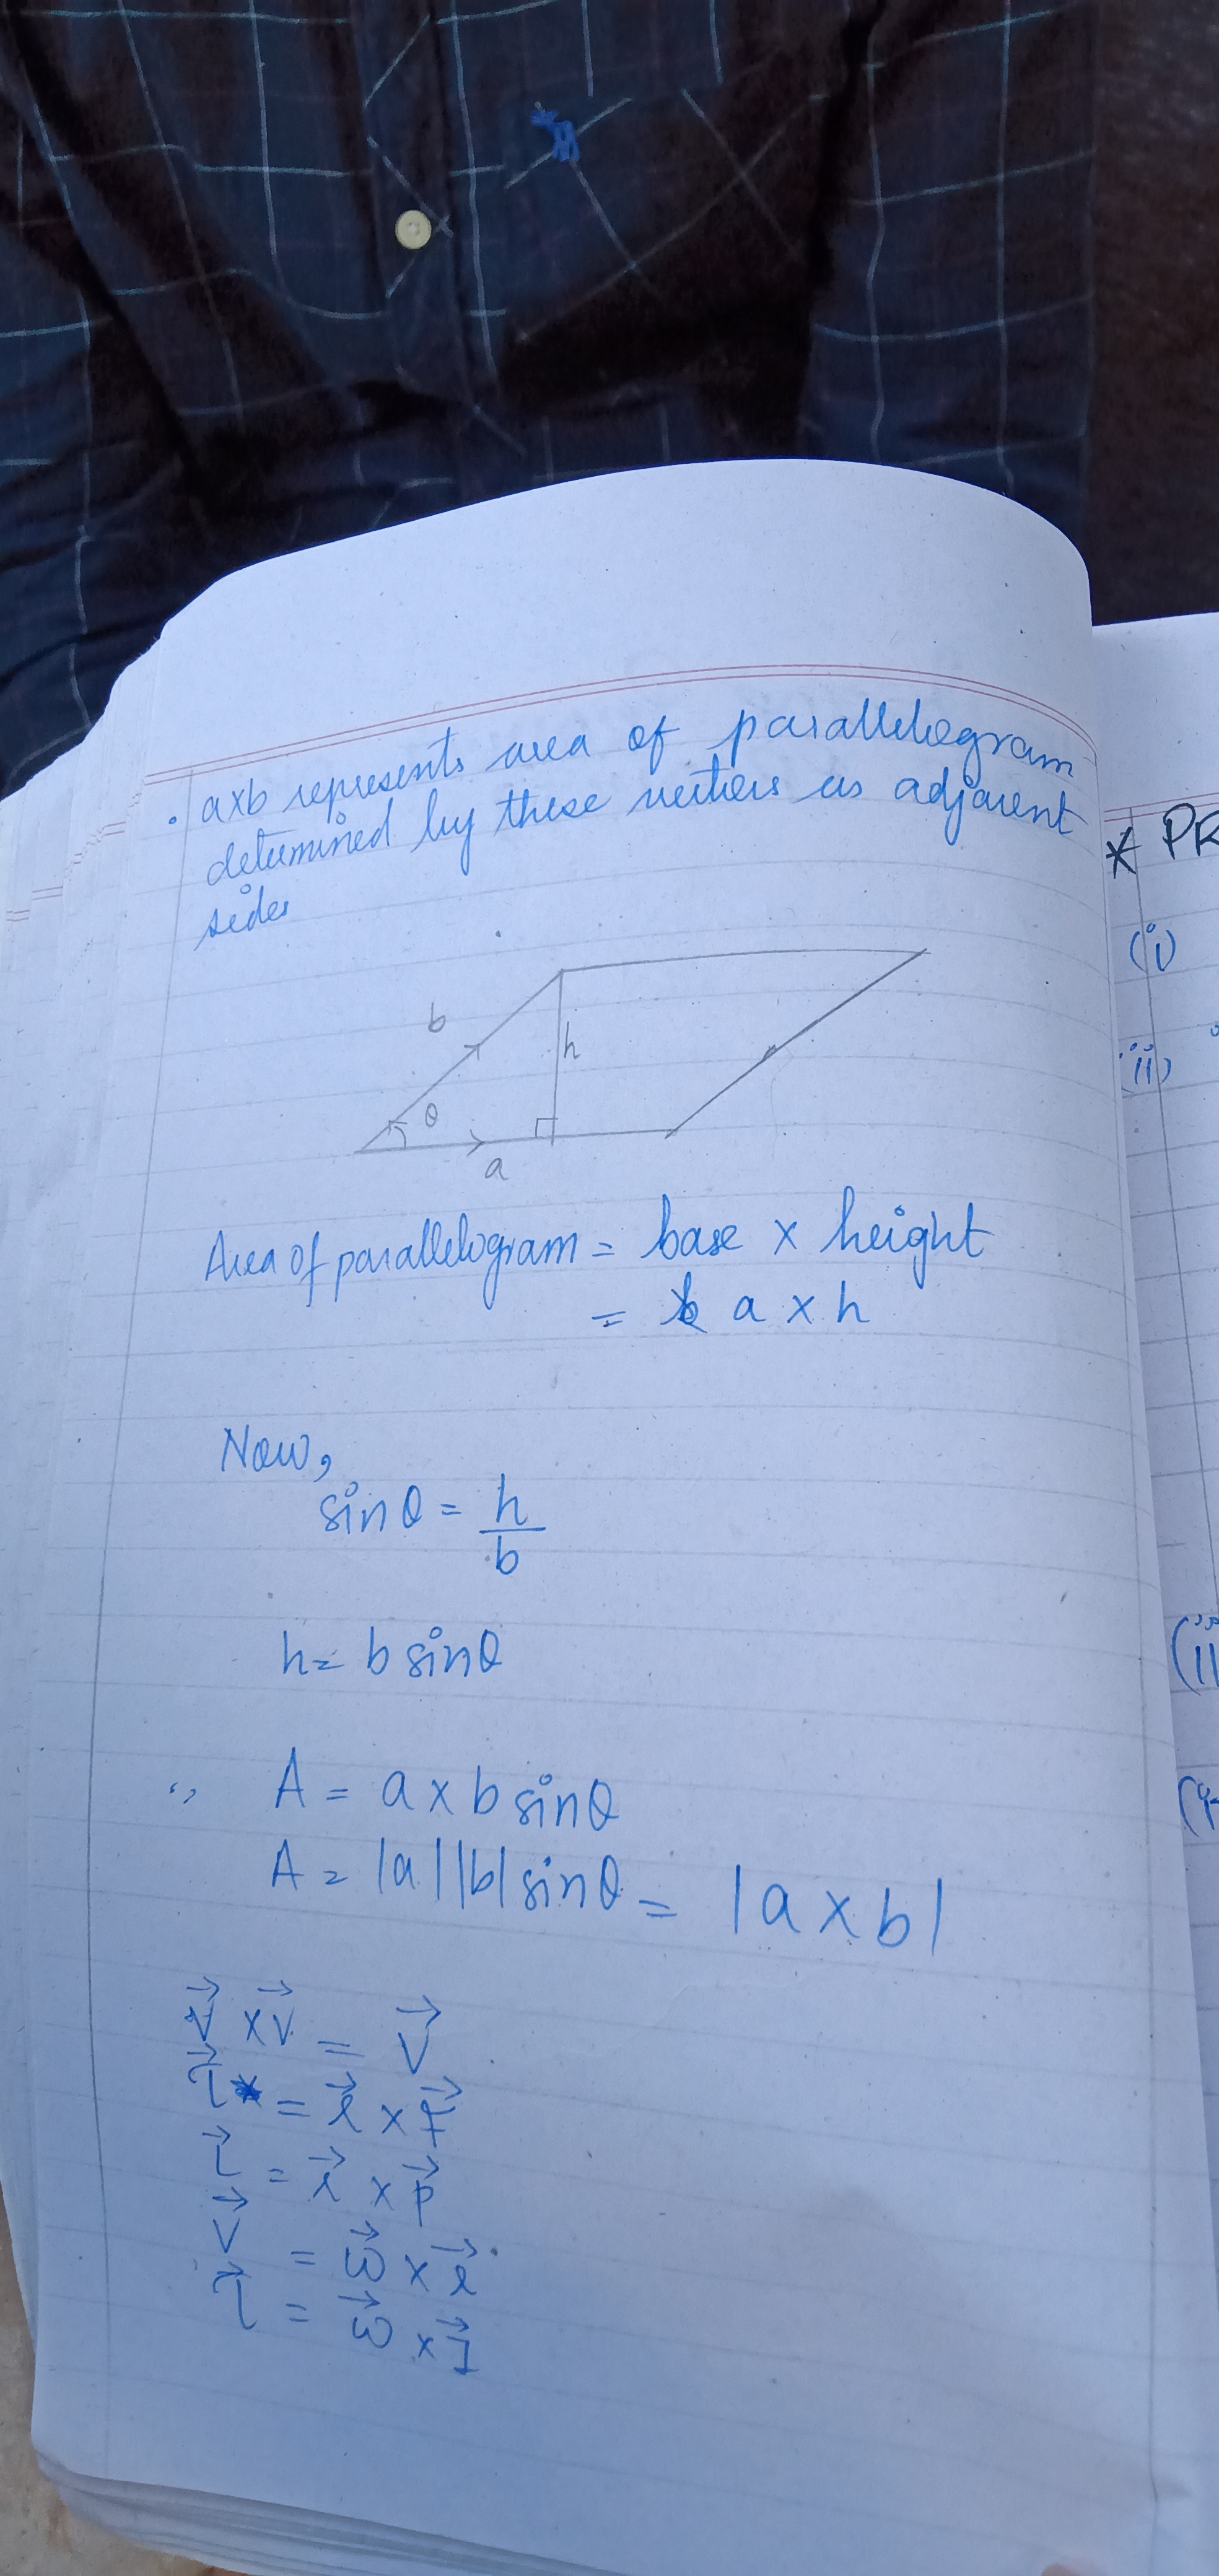 . a×b represents area of parallelogram
determined by these vectors as adjacent
sides
b
h
θ
a
Area of parallelogram = base × height
= a × h
Now,
sinθ = h/b
h = b sinθ
∴ A = a × b sinθ
A = |a||b| sinθ = |a × b|
v⃗ × v⃗ = v⃗
τ⃗ = r⃗ × f⃗
L⃗ = r⃗ × p⃗
v⃗ = ω⃗ × r⃗
τ⃗ = ω⃗ × I⃗
* PR
(i)
(ii)
(ii
(i